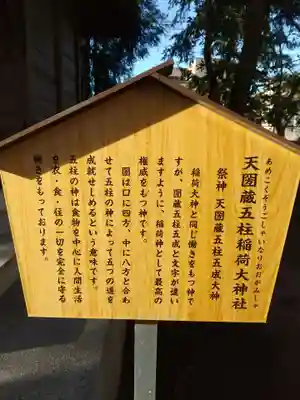 あめこくぞうごしゃいなりおおがみしゃ
天圀蔵五柱稲荷大神社
祭神　天圀蔵五柱五成大神
稲荷大神と同じ働きをもつ神で
すが、圀蔵五柱五成と文字が違い
ますように、稲荷神として最高の
権威をもつ神です。
圀は口に四方、中に八方と合わ
せて五柱の神によって五つの道を
成就せしめるという意味です。
五柱の神は食物を中心に人間生活
の衣・食・住の一切を完全に守る
働きをもっております。